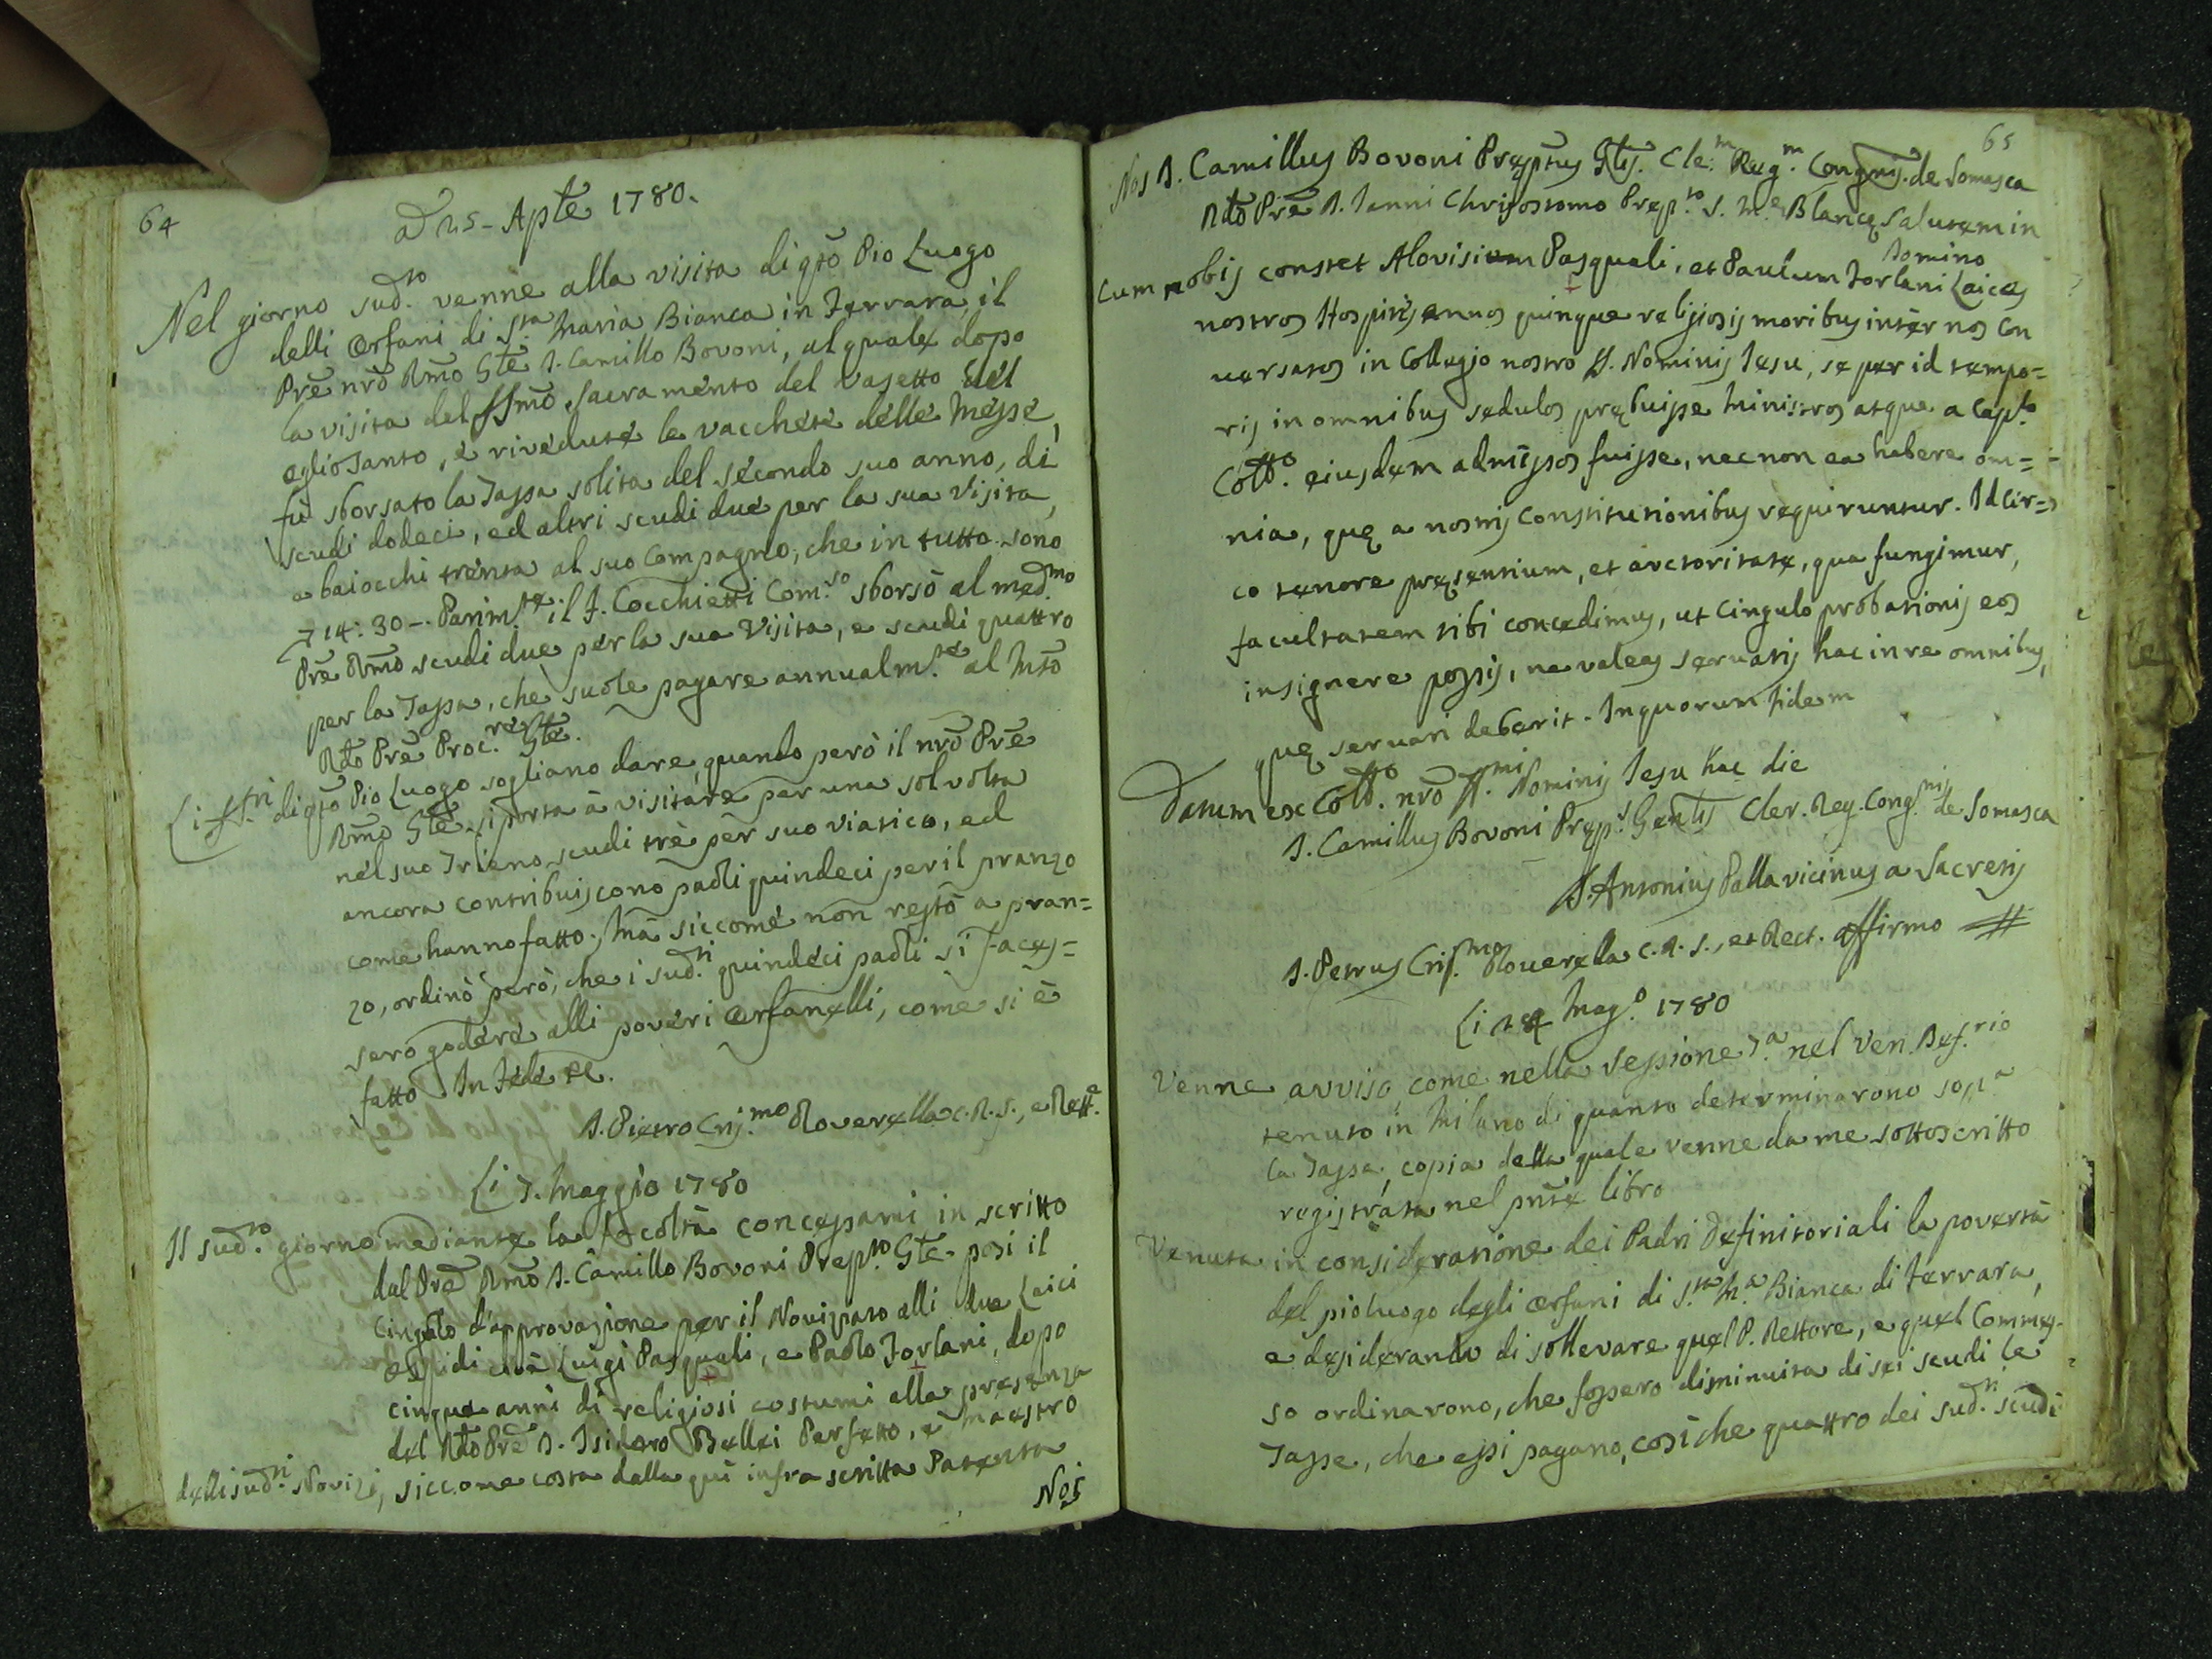 64
A dì 25 - Aple 1780.
Nel giorno sud.to venne alla visita di qto Pio Luogo
delli Orfani di S.ta Maria Bianca in Ferrara, il
Pre nro Rmo Gle D. Camillo Bovoni, al quale dopo
la visita del SSmo Sacramento del Vasetto dell
oglio santo, e rivedute le vacchete delle Messe,
fù sborsato la Tassa solita del secondo suo anno, di
scudi dodeci, ed altri scudi due per la sua Visita,
e baiocchi trenta al suo Compagno, che in tutto sono
14: 30 -. Parim.te il F. Cocchietti Com.so sborsò al med.mo
Pre Rmo scudi due per la sua Visita, e scudi quattro
per la Tassa, che suole pagare annualm.te al Mto
Rdo Pre Proc.re Gle.
Li F.ri di qto Pio Luogo sogliano dare, quando però il nro Pre
Rmo Gle si porta à visitare per una sol volta
nel suo Trieno scudi trè per suo viatico, ed
ancora contribuiscono paoli quindeci per il pranzo
come hanno fatto. Mà siccome non restò a pran=
zo, ordinò però, che i sud.ti quindeci paoli si faces=
sero godere alli poveri Orfanelli, come si è
fatto In Fede &c.
D. Pietro Cris.mo Roverella C.R.S., e Rett.e
Li 7. Maggio 1780
Il sud.to giorno mediante la facoltà concessami in scritto
dal Pre Rmo D. Camillo Bovoni Prep.to Gle posi il
Cingolo d'approvazione per il Noviziato alli due Laici
ospiti cioè Luigi Pasquali, e Paolo Forlani, dopo
cinque anni di religiosi costumi alla presenza
del Rdo Pre D. Isidoro Bellei Perfetto, e Maestro
delli sud.ti Novizi, siccome costa dalla quì infrascritta Patente
Nos
65
Nos D. Camillus Bovoni Prępstus Glis. Cle.m Reg.m Congnis. de Somasca
Rdo Pre D. Ianni Chrisostomo Prep.to S. M.ę Blancę Salutem in
Domino
Cum nobis constet Alovisium Pasquali, et Paulum Forlani Laicos
nostros Hospites annos quinque religiosis moribus inter nos con
versatos in Collegio nostro SS. Nominis Iesu, se per id tempo=
ris in omnibus sedulos prębuisse Ministros atque a Cap.lo
Coll.o eiusdem admissos fuisse, nec non ea habere om=
nia, quę a nostris Constitutionibus requiruntur. Idcir=
co tenore pręsentium, et avctoritate, qua fungimur,
facultatem tibi concedimus, ut Cingulo probationis eos
insignere possis, ne valeas servatis hac in re omnibus,
quę servari deberit. In quorum Fidem
Datum ex Coll.o nro SS.mi Nominis Iesu hac die
D. Camillus Bovoni Pręp.s Genlis Cler. Reg. Cong.nis de Somasca
D. Antonius Pallavicinus a Secretis
D. Petrus Cris.mo Roverella C.R.S., et Rect. affirmo
Li 24 Mag.o 1780
Venne avviso come nella Sessione 7.a nel Ven. Def.rio
tenuto in Milano di quanto determinarono sop.a
la Tassa, copia della quale venne da me sottoscritto
registrata nel pnte libro
Venuta in considerazione dei Padri Definitoriali la povertà
del pio luogo degli Orfani di S.ta M.a Bianca di Ferrara,
e desiderando di sollevare quel P. Rettore, e quel Commes=
so ordinarono, che fossero diminuita di sei scudi le
Tasse, che essi pagano, così che quattro dei sud.ti scudi